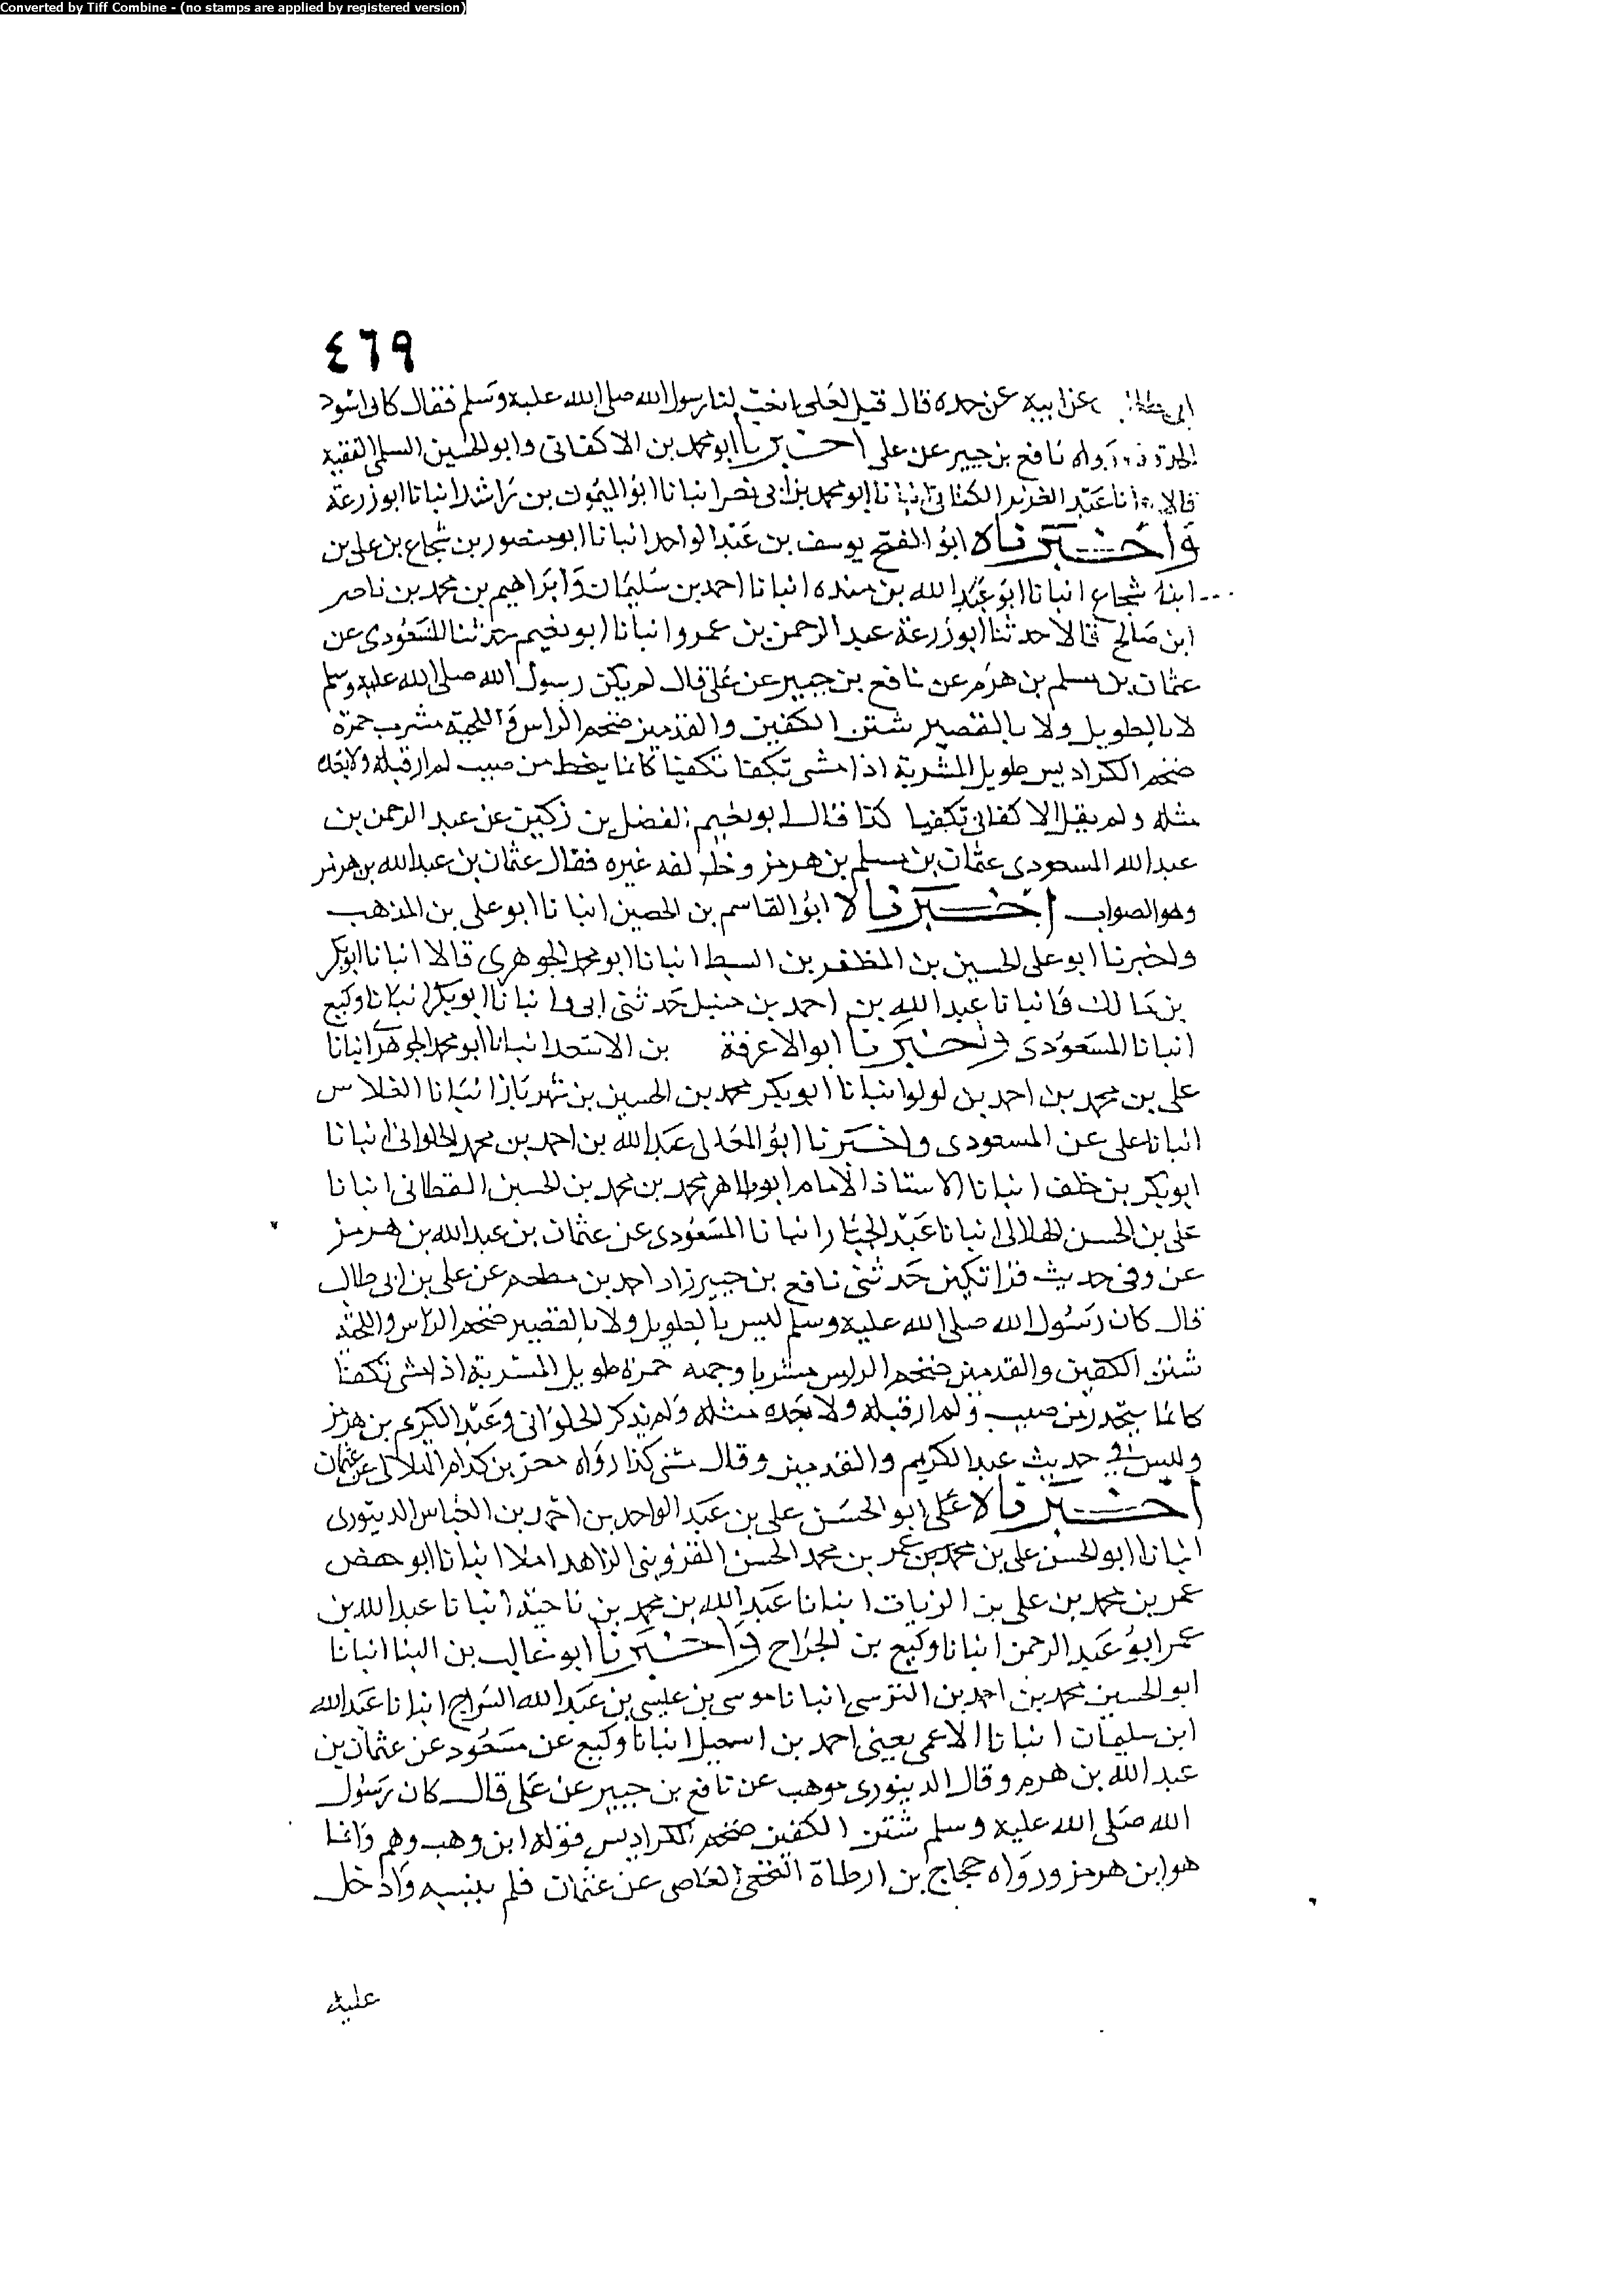 Converted by Tiff Combine - (no stamps are applied by registered version)
٤٦٩
ابى عن ابيه عن جده قال قيل لعلى انعت لنا رسول الله صلى الله عليه وسلم فقال كان اسود
رواه نافع بن جبير عن على اخبرنا ابو محمد بن الاكفانى وابو الحسين السلمى الفقيه
قالا انا عبد العزيز الكتانى انبانا ابو محمد بن ابى نصر انبانا ابو الميمون بن راشد انبانا ابو زرعة
واخبرناه ابو الفتح يوسف بن عبد الواحد انبانا ابو منصور بن شجاع بن على بن
ابنه شجاع انبانا ابو عبد الله بن منده انبانا احمد بن سليمان وابراهيم بن محمد بن ناصر
ابن صالح قالا حدثنا ابو زرعة عبد الرحمن بن عمرو انبانا ابو نعيم حدثنا المسعودى عن
عثمان بن مسلم بن هرمز عن نافع بن جبير عن على قال لم يكن رسول الله صلى الله عليه وسلم
لا بالطويل ولا بالقصير شتن الكفين والقدمين ضخم الراس واللحية مشرب حمرة
ضخم الكراديس طويل المشربة اذا مشى تكفا تكفيا كانما يخط من صبب لم ار قبله ولا بعده
مثله ولم يقل الاكفانى تكفيا كذا قال ابو نعيم الفضل بن زكين عن عبد الرحمن بن
عبد الله المسعودى عثمان بن مسلم بن هرمز وخالفه غيره فقال عثمان بن عبد الله بن هرمز
وهو الصواب اخبرنا لا ابو القاسم بن الحصين انبانا ابو على بن المذهب
واخبرنا ابو على الحسين بن المظفر بن السبط انبانا ابو محمد الجوهرى قالا انبانا ابو بكر
بن مالك قا نبانا عبد الله بن احمد بن حنبل حدثنى ابى وانبانا ابو بكر انبانا وكيع
انبانا المسعودى واخبرنا ابو الاعرفة بن الاستعد انبانا ابو محمد الجوهرى انبانا
على بن محمد بن احمد بن لولو انبانا ابو بكر محمد بن الحسين بن شهريار انبانا الفلاس
انبانا على عن المسعودى واخبرنا ابو المعالى عبد الله بن احمد بن محمد الحلوانى انبانا
ابو بكر بن خلف انبانا الاستاذ الامام ابو طاهر محمد بن محمد بن الحسين القطانى انبانا
على بن الحسن الهلالى انبانا عبد الجبار انبانا المسعودى عن عثمان بن عبد الله بن هرمز
عن وفى حديث حدثنى نافع بن جبير زاد احمد بن مطعم عن على بن ابى طالب
قال كان رسول الله صلى الله عليه وسلم ليس بالطويل ولا بالقصير ضخم الراس واللحية
شتن الكفين والقدمين ضخم الراس مشربا وجهه حمرة طويل المسربة اذا مشى تكفا
كانما يتحدر من صبب ولم ار قبله ولا بعده مثله ولم يذكر الحلوانى وعبد الكريم بن هرمز
وليس فى حديث عبد الكريم والقدمين وقال كذا رواه بن كدام الهلالى عن عثمان
اخبرنا لا على ابو الحسن على بن عبد الواحد بن احمد بن العباس الدينورى
انبانا ابو الحسن على بن محمد بن عمر بن محمد الحسن القزوينى الزاهد املا انبانا ابو حفص
عمر بن محمد بن على بن الزيات انبانا عبد الله بن محمد بن ناحية انبانا عبد الله بن
عمر ابو عبد الرحمن انبانا وكيع بن الجراح واخبرنا ابو غالب بن البنا انبانا
ابو الحسين محمد بن احمد بن النرسى انبانا موسى بن عيسى بن عبد الله السراج انبانا عبد الله
ابن سليمان انبانا الاعمى يعنى احمد بن اسمعيل انبانا وكيع عن مسعود عن عثمان بن
عبد الله بن هرم وقال الدينورى موهب عن نافع بن جبير عن على قال كان رسول
الله صلى الله عليه وسلم شتن الكفين ضخم الكراديس قوله ابن وهب وهم وانما
هو ابن هرمز ورواه حجاج بن ارطاة النخعى القاضى عن عثمان فلم ينسبه وادخل
عليه